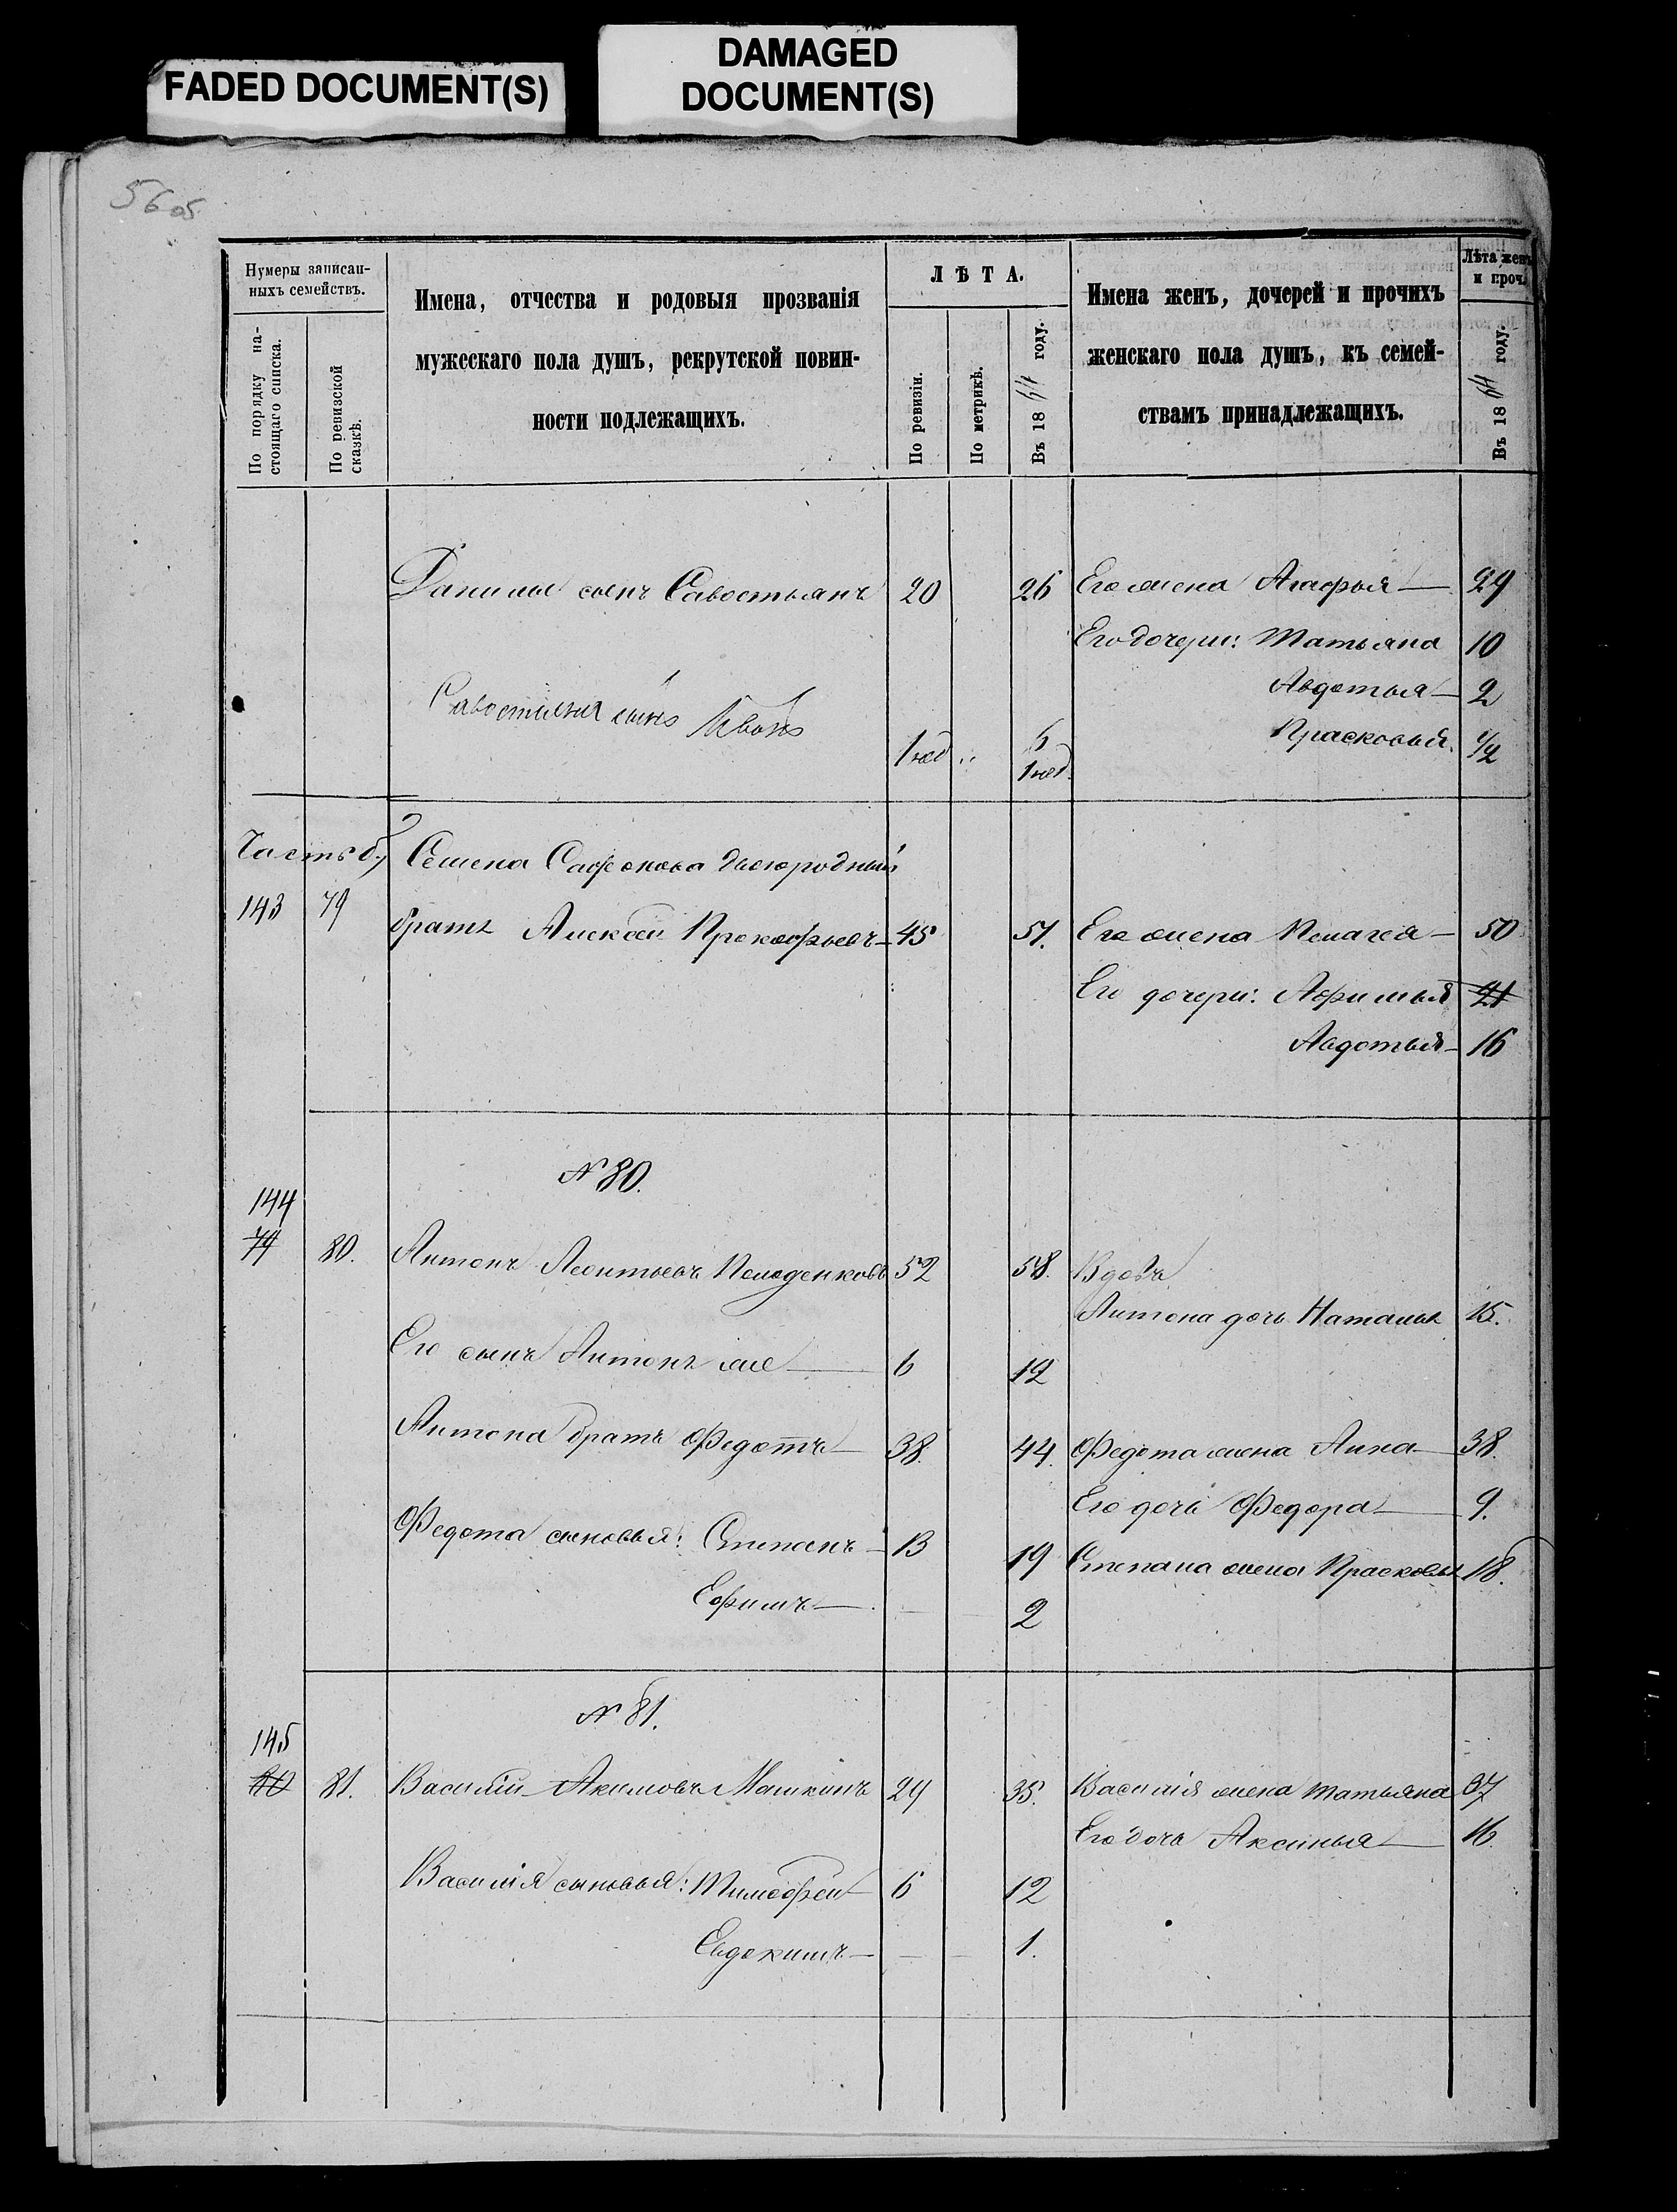 FADED DOCUMENT(S)
DAMAGED
DOCUMENT(S)
56 об
Нумеры записан-
ныхъ семействъ.
По порядку на-
стоящаго списка.
По ревизской
сказкѣ.
Имена, отчества и родовыя прозванія
мужескаго пола душъ, рекрутской повин-
ности подлежащихъ.
ЛѢТА.
По ревизіи.
По метрикѣ.
Въ 1864 году.
Имена женъ, дочерей и прочихъ
женскаго пола душъ, къ семей-
ствамъ принадлежащихъ.
Лѣта женъ
и проч.
Въ 1864 году.
Данилы сынъ Савостьянъ 20 26 Его жена Агафья 29
Его дочери: Татьяна 10
Авдотья 2
Савостьяна сынъ Иванъ Прасковья 1/2
1 нед 6
1 нед.
Часть б.
Семена Сафонова двоюродный
143 79 братъ Алексѣй Прокофьевъ 45 51. Его жена Пелагея 50
Его дочери: Афимья 21
Авдотья 16
N 80.
144
79 80. Антонъ Леонтьевъ Положенковъ 52 58. Вдовъ
Антона дочь Наталья 15.
Его сынъ Антонъ же 6 12
Антона братъ Федотъ 38. 44. Федота жена Анна 38.
Его дочь Федора 9.
Федота сыновья: Степанъ 13 19 Степана жена Прасковья 18.
Ефимъ 2
N 81.
145
80 81. Василій Акимовъ Машкинъ 29 35. Василія жена Татьяна 37
Его дочь Аксинья 16.
Василія сыновья: Тимофей 6 12
Евдокимъ 1.